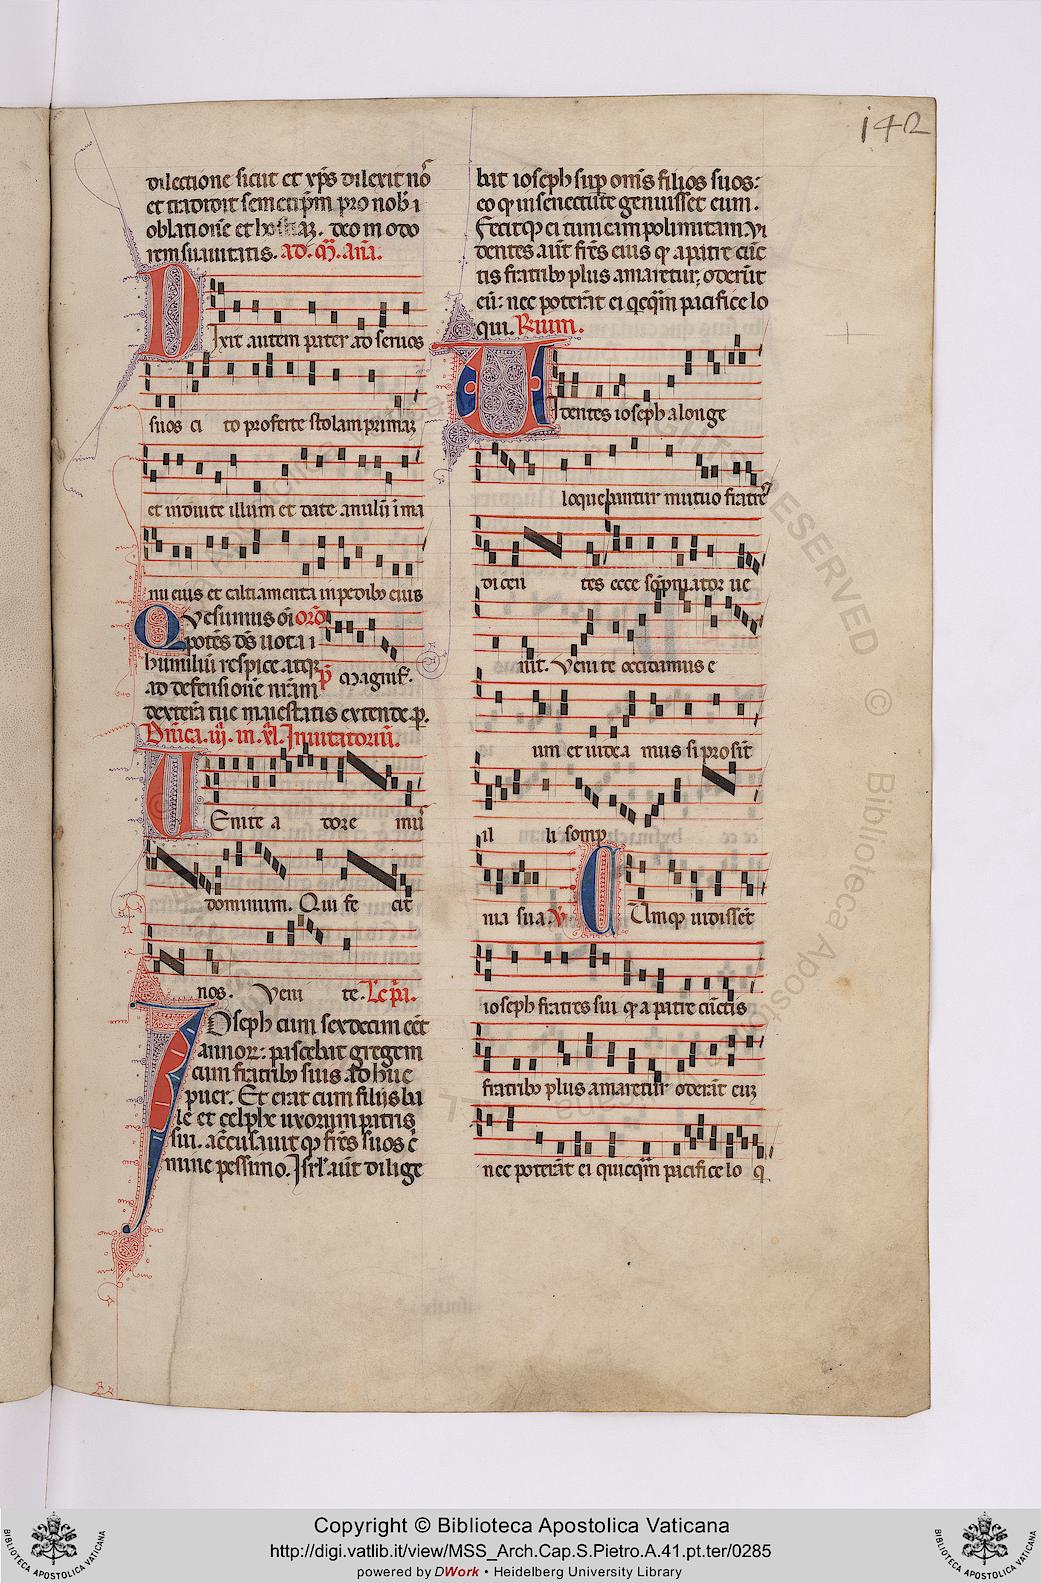 142
dilectione sicut et xp̄s dilexit nos
et tradidit semetip̄m pro nob̄ i
oblationē et hostiaꝫ. deo in odo
rem suauitatis. ad. m̄. an̄a.
Dixit autem pater ad seruos
suos ci to proferte stolam primaꝫ
et induite illum et date anulū i ma
nu eius et caltiamenta in pedibꝰ eius
Quesumus oī or̄o
potēs d̄s uota
humiliū respice atqꝫ
ad defensionē nr̄am p̄ Magnif̄.
dexterā tue maiestatis extende. p.
Dn̄ica. iij. in. xl. Inuitatoriū.
Uenite a dore mū
dominum. Qui fe cit
nos. Veni te. Lc̄ p̄a.
Ioseph cum sexdecim eēt
annoꝝ: pascebat gregem
cum fratribꝰ suis ad huc
puer. Et erat cum filijs ba
le et celphe uxorum patris
sui. accusauit qꝫ fr̄es suos c̄
mine pessimo. Isrl̄. aūt dilige
bat ioseph sup om̄s filios suos:
eo qꝫ in senectute genuisset eum.
Fecitqꝫ ei tunicam polimitam. Vi
dentes aūt fr̄es eius qꝫ a patre cūc
tis fratribꝰ plus amaretur; oderūt
eū: nec poterāt ei qc̄qm̄ pacifice lo
qui. R̄ium.
Uidentes ioseph a longe
loquebantur mutuo fratres
dicen tes ecce sōpniator ue
nit. Venite occidamus e
um et uidea mus si prosīt
il li somp
nia sua. V̄ Cumqꝫ uidissēt
ioseph fratres sui qꝫ a patre cūctis
fratribꝰ plus amaretur oderāt euꝫ
nec poterāt ei quicqm̄ pacifice lo q
Copyright © Biblioteca Apostolica Vaticana
http://digi.vatlib.it/view/MSS_Arch.Cap.S.Pietro.A.41.pt.ter/0285
powered by DWork • Heidelberg University Library
BIBLIOTECA APOSTOLICA VATICANA
BIBLIOTECA APOSTOLICA VATICANA